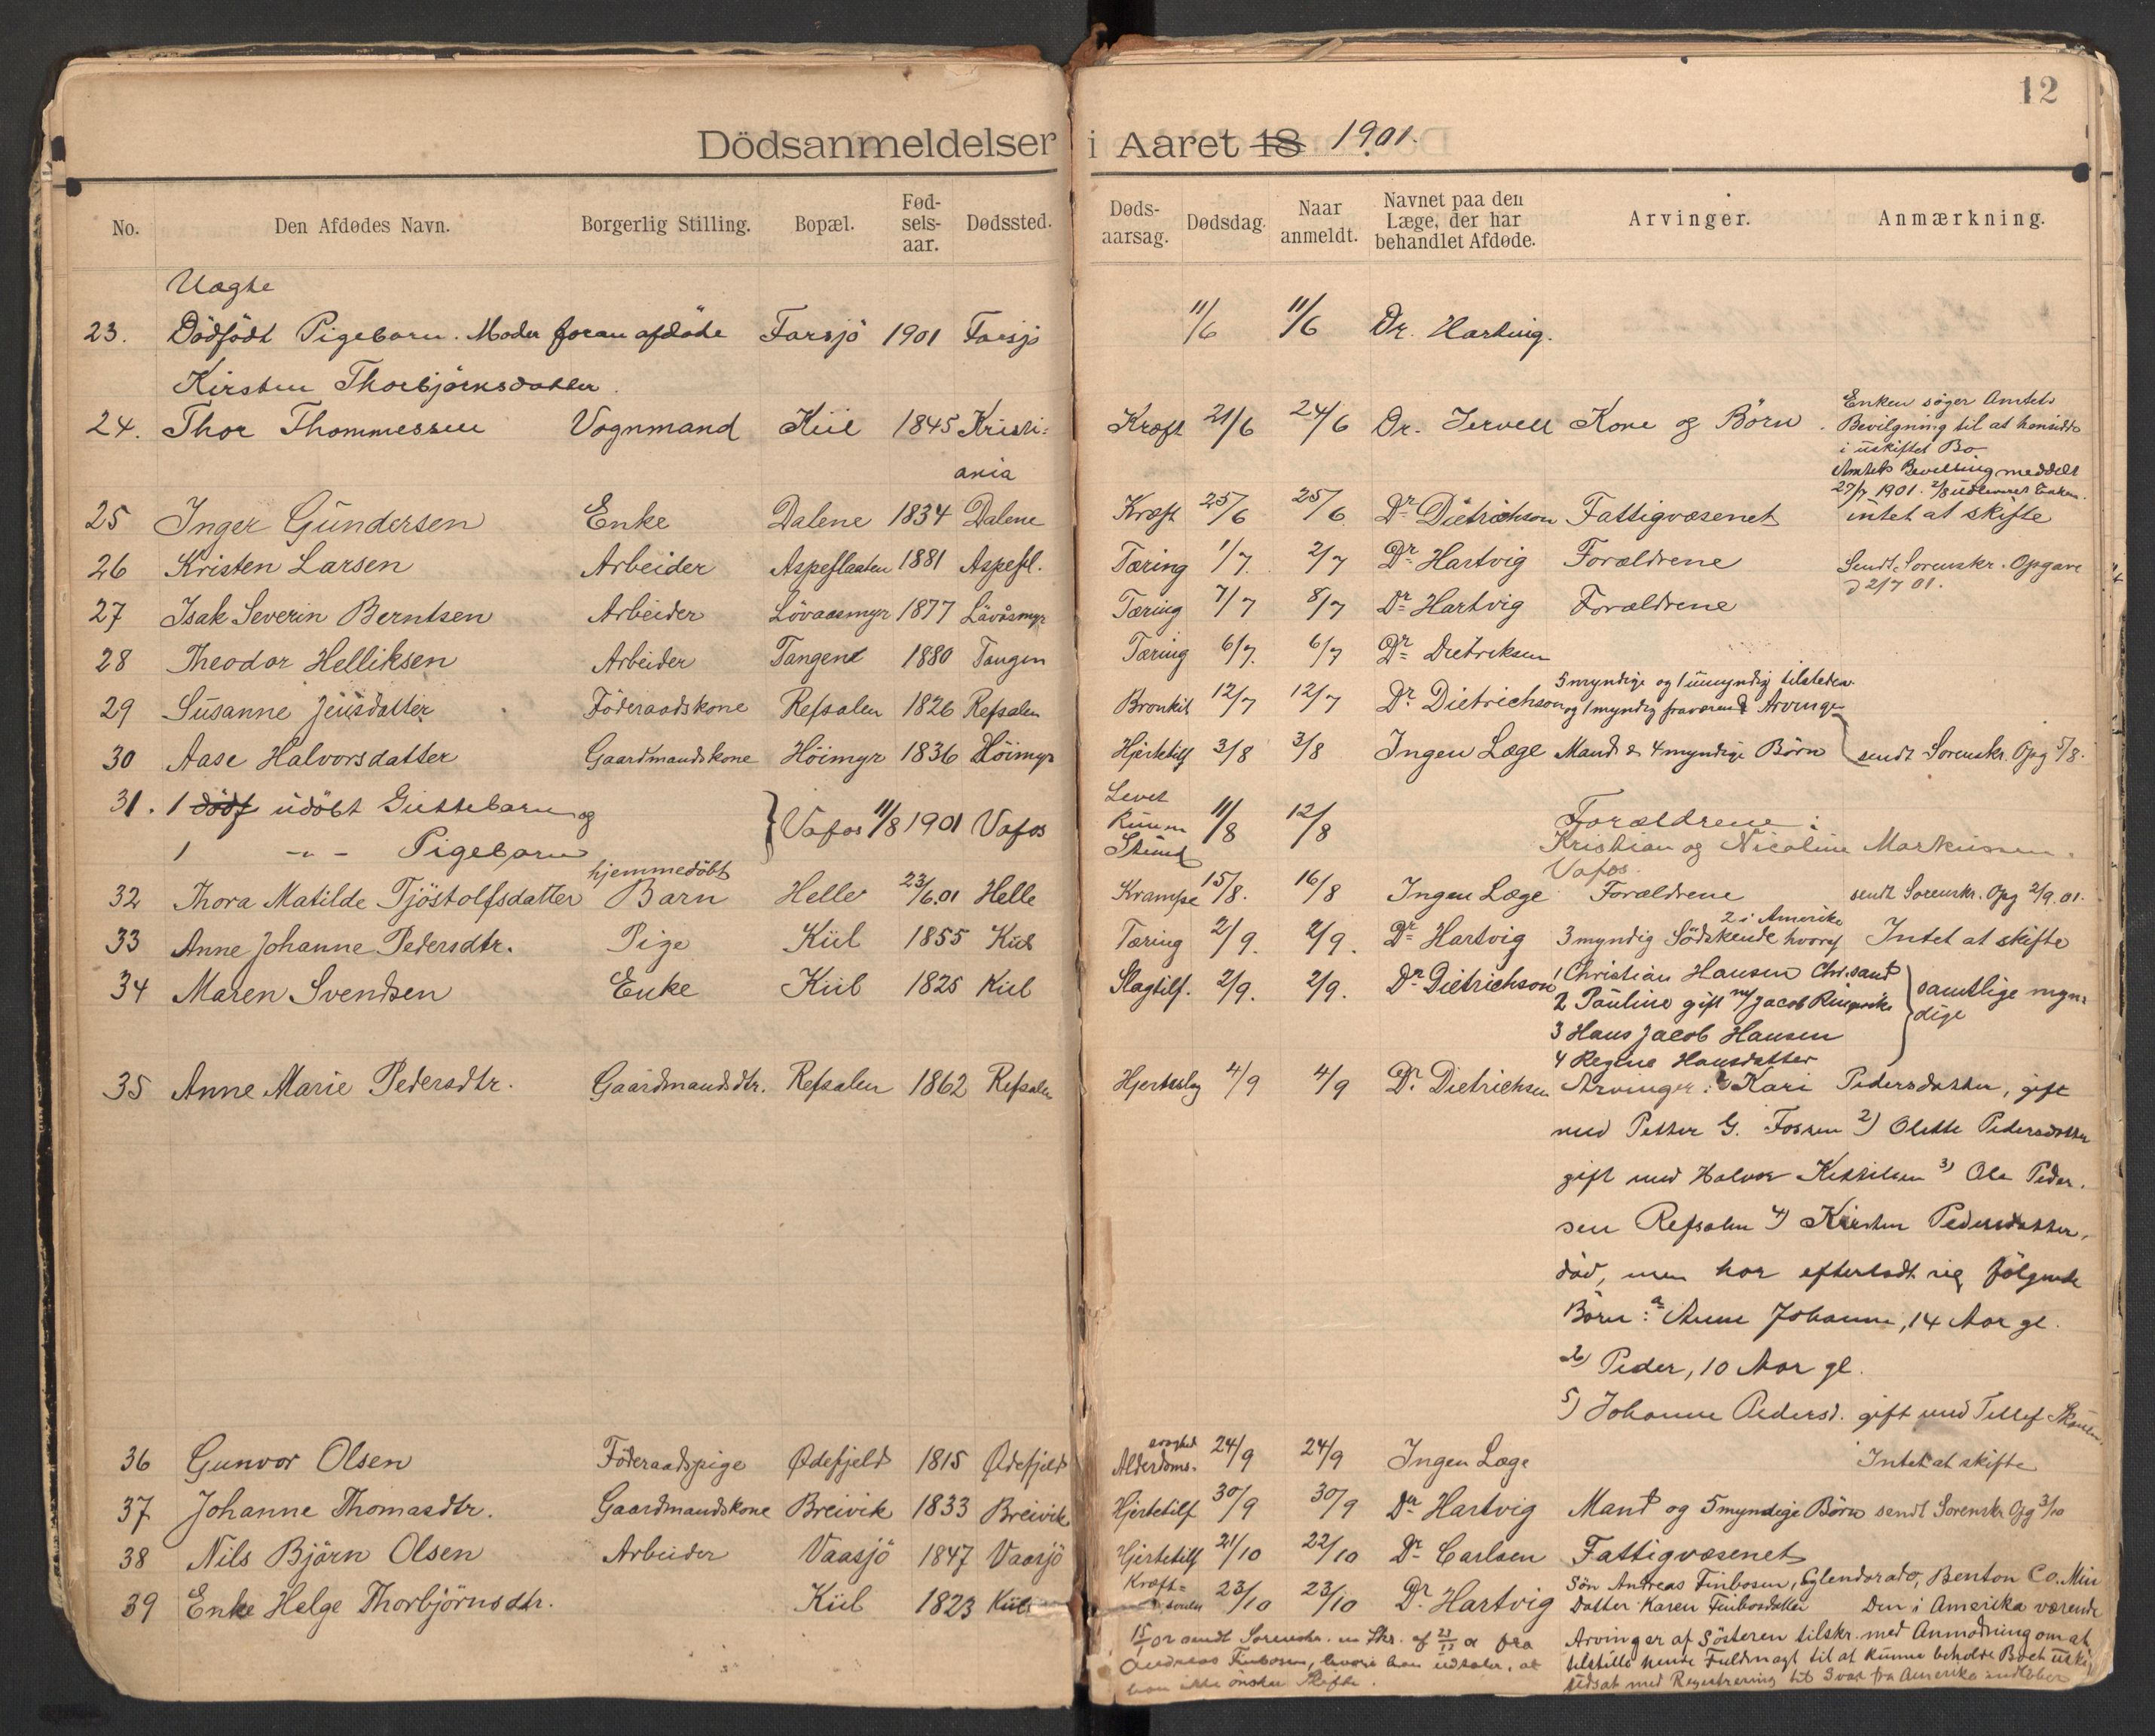 12
Dödsanmeldelser i Aaret 18 1901.
No. Den Afdødes Navn. Borgerlig Stilling. Bopæl. Fød-sels-aar. Dødssted. Døds-aarsag. Dødsdag. Naar anmeldt. Navnet paa den Læge, der har behandlet Afdøde. Arvinger. Anmærkning.
Uægte
23. Dödfödt Pigebarn. Moder foran afdöde Farsjö 1901 Farsjö 11/6 11/6 Dr. Hartvig.
Kirsten Thorbjörnsdatter.
24. Thor Thommessen Vognmand Kiil 1845 Kristi-ania Kræft 21/6 24/6 Dr. Jervell Kone og Börn.
Enken söger Amtets
Bevilgning til at hensidde
i uskiftet Bo
Amtets Bevilling meddelt
27/7 1901. 2/8 udleveret Enken.
25 Inger Gundersen Enke Dalene 1834 Dalene Kræft 25/6 25/6 Dr Dietrichson Fattigvæsenet intet at skifte
26 Kristen Larsen Arbeider Aspeflaaten 1881 Aspefl. Tæring 1/7. 2/7 Dr Hartvig Forældrene Sendt Sorenskr. Opgave
27 Isak Severin Berntsen Arbeider Lövaasmyr 1877 Lövåsmyr Tæring 7/7 8/7 Dr Hartvig Forældrene
28 Theodor Helliksen Arbeider Tangen 1880 Tangen Tæring 6/7. 6/7 Dr Dietriksen
29 Susanne Jensdatter Föderaadskone Refsalen 1826 Refsalen Bronkit 12/7 12/7 Dr Dietrichson
5 myndige og 1 umyndig tilstede.
og 1 myndig fraværende Arvinge
30 Aase Halvorsdatter Gaardmandskone Höimyr 1836 Höimyr Hjertetilf 3/8 3/8 Ingen Læge Mand & 4 myndige Börn sendt Sorenskr. Opg 5/8.
31. 1 dödf udöbt Guttebarn og
1 -"- Pigebarn } Vafos 11/8 1901 Vafos Levet Stund 11/8 12/8 Forældrene:
Kristian og Nicoline Markussen.
Vafos.
hjemmedöbt
32 Thora Matilde Tjöstolfsdatter Barn Helle 23/6.01 Helle Krampe 15/8. 16/8 Ingen Læge Forældrene sendt Sorenskr. Opg 2/9.01.
2 i Amerika
33 Anne Johanne Pedersdtr. Pige Kiil 1855 Kiil Tæring 2/9. 2/9. Dr Hartvig 3 myndig Södskende hvoraf Intet at skifte
34 Maren Svendsen Enke Kiil 1825 Kiil Slagtilf. 2/9. 2/9. Dr Dietrichson 1 Christian Hansen Chr.sand
2 Pauline gift m/ Jacob } samtlige myn-dige
3 Hans Jacob Hansen
4 Regine Hansdatter
35 Anne Marie Pedersdtr. Gaardmandsdtr. Refsalen 1862 Refsalen Hjerteslag 4/9 4/9 Dr. Dietrichsen Arvinger: 1) Kari Pedersdatter, gift
med Petter G. Fossen 2) Olette Pedersdatter
gift med Halvor Kittilsen 3) Ole Peder-
sen Refsalen 4) Kirsten Pedersdatter,
död, men har efterladt sig fölgende
Börn: a Anne Johanne, 14 Aar gl.
b) Peder, 10 Aar gl.
5) Johanne Pedersd. gift med Tellef
36 Gunvor Olsen Föderaadspige Ødefjeld 1815 Ødefjeld Alderdoms-svaghed 24/9 24/9 Ingen Læge Intet at skifte
37 Johanne Thomasdtr. Gaardmandskone Breivik 1833 Breivik Hjertetilf 30/9 30/9 Dr Hartvig Mand og 5 myndige Börn sendt Sorenskr Opg 3/10
38 Nils Björn Olsen Arbeider Vaasjö 1847 Vaasjö Hjertetilf 21/10 22/10 Dr Carlsen Fattigvæsenet
39 Enke Helge Thorbjörnsdtr. Kiil 1823 Kiil Kræft- 23/10 23/10 Dr. Hartvig
Sön Andreas Finbosen, Eglendorado, Benton Co. Min
Datter Karen Finbosdatter Den i Amerika værende
Arvinger af Sösteren tilskr. med Anmodning om at
tilstille hende Fuldmagt til at kunne beholde Boet uskif
udsat med Registrering til Svar fra Amerika indlöber
sendt Sorenskr. en Skr. af fra
Andreas Finbosen, hvori han udtaler, at
han ikke önsker Skifte.